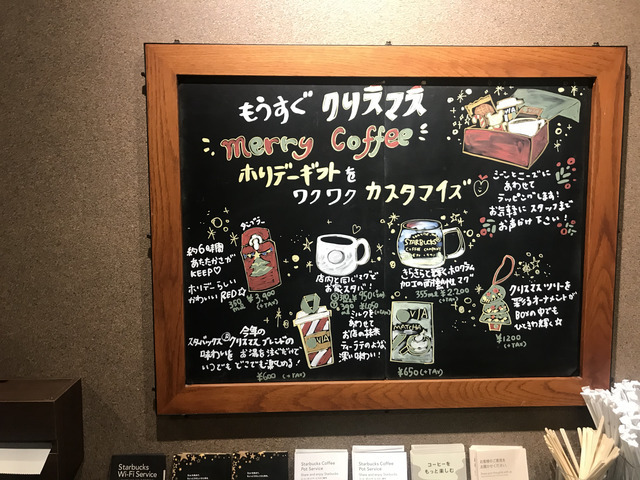 もうすぐ クリスマス
merry Coffee
ホリデーギフトを
ワクワク カスタマイズ
シーンとニーズに
あわせて
ラッピングします!
お気軽に スタッフまで
お声掛け下さい!
タンブラー
約6時間
あたたかさが
KEEP♡
ホリデーらしい
かわいい RED☆
店内と同じマグで
お家スタバ!
STARBUCKS
きらきらと輝くホログラム
加工の耐熱マグ
355ml ¥2,200
(+TAX)
クリスマス ツリーを
彩るオーナメントが
BOXの中でも
ひときわ輝く☆
¥1200
(+TAX)
今年の
スターバックス® クリスマス ブレンドの
味わいを お湯を注ぐだけで
いつでも どこでも楽しめる!
¥600 (+TAX)
VIA
ミルクを
あわせて
お店の抹茶
ティーラテのような
深い味わい!
VIA
MATCHA
¥650(+TAX)
Starbucks
Wi-Fi Service
Starbucks Coffee
Pot Service
Starbucks Coffee
Pot Service
コーヒーを
もっと楽しむ